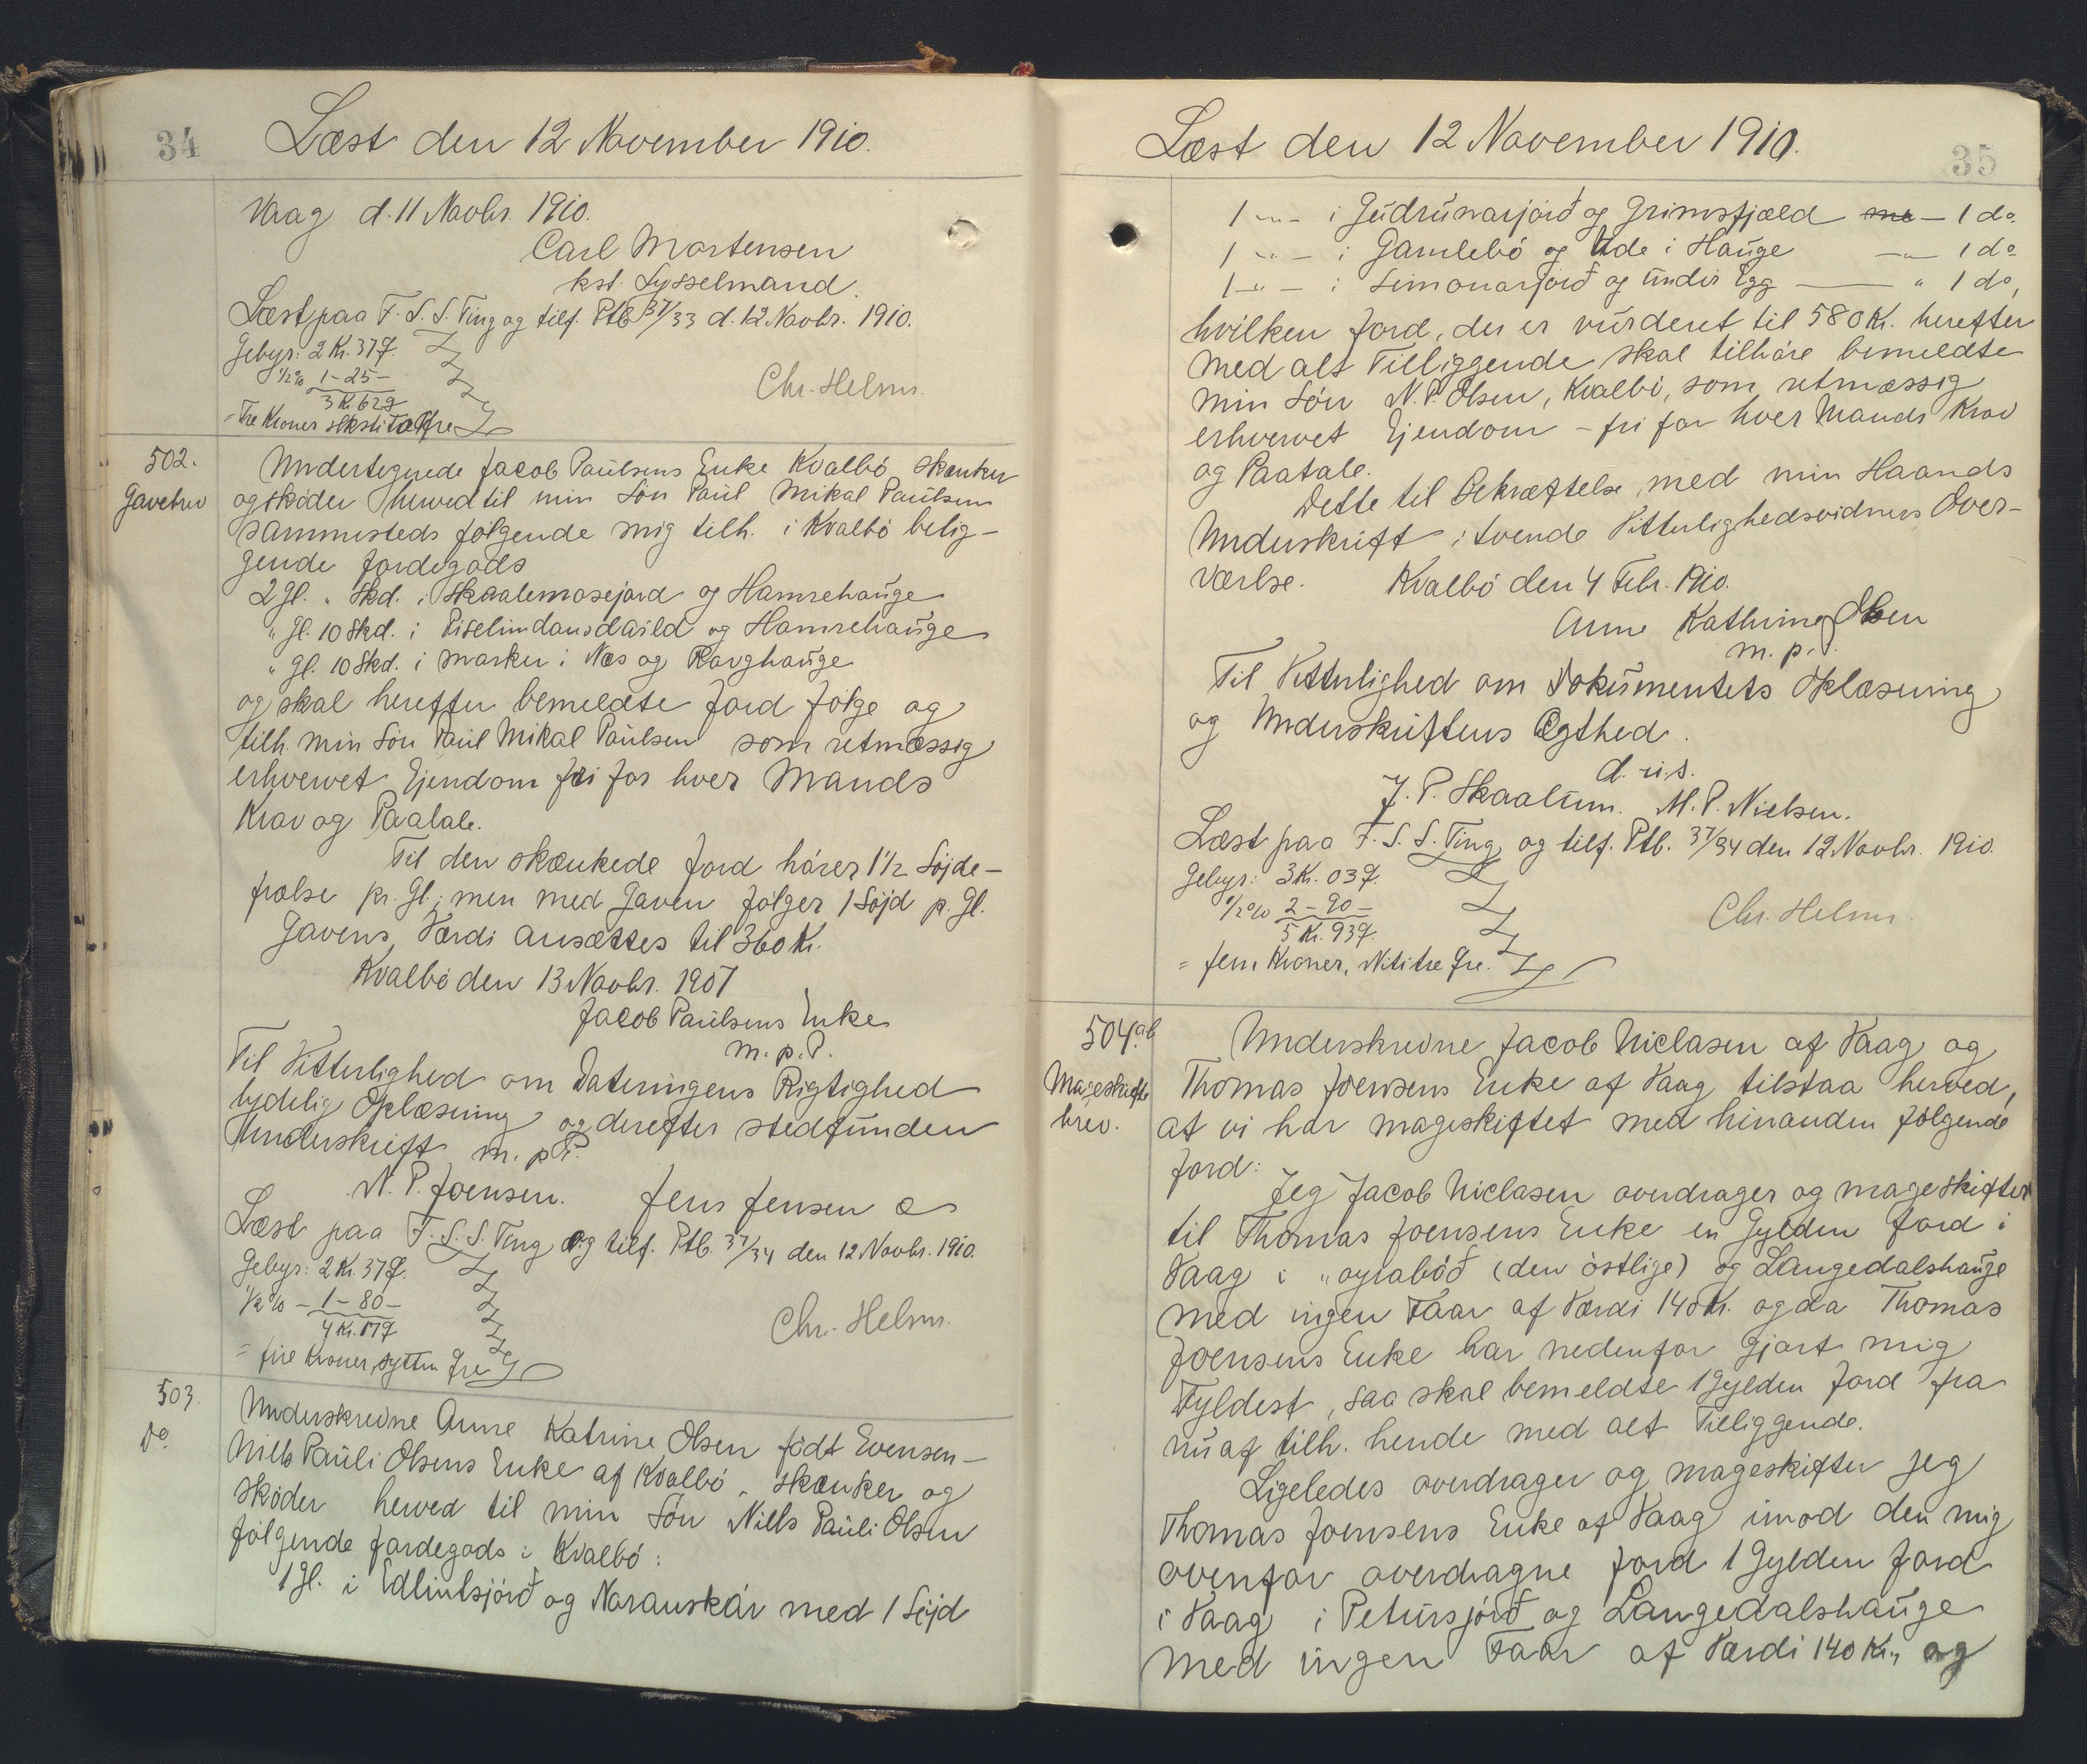 34
Læst den 12 November 1910.
Vaag d. 11 Novbr. 1910.
Carl Mortensen
kst. Sysselmand.
Læst paa F. S. S. Ting og tilf. Ptb 37/33 d. 12 Novbr. 1910.
Gebyr: 2 Kr. 37 Ø.
1/2 % 1 - 25 -
3 Kr. 62 Ø
= Tre Kroner seksti to Øre
Chr. Helms.
502.
Gavebrev
Undertegnede Jacob Paulsens Enke Kvalbö skænker
og sköder herved til min Sön Paul Mikal Paulsen
sammesteds fölgende mig tilh. i Kvalbö belig-
gende Jordegods
2 Gl. " Skd. i Skaalemosejord og Hamrehauge
" Gl. 10 Skd. i og Hamrehauge
" Gl. 10 Skd. i marken i Nes og Ravghauge
og skal herefter bemeldte Jord fölge og
tilh. min Sön Paul Mikal Paulsen som retmæssig
erhvervet Ejendom fri for hver Mands
Krav og Paatale.
Til den skænkede Jord hörer 1 1/2 Söjde-
frælse pr. Gl.; men med Gaven fölger 1 Söjd p. Gl.
Gavens Værdi ansættes til 360 Kr.
Kvalbö den 13 Novbr. 1907
Jacob Paulsens Enke
m. p. P.
Til Vitterlighed om Dateringens Rigtighed
lydelig Oplæsning og derefter stedfunden
Underskrift m. p. P.
N. P. Joensen. Jens Jensen
Læst paa F. S. S. Ting og tilf. Ptb. 37/34 den 12 Novbr. 1910.
Gebyr: 2 Kr. 37 Ø.
1/2 % - 1 - 80 -
4 Kr. 17 Ø
= fire Kroner, sytten Øre
Chr. Helms.
503.
Do
Underskrevne Anne Katrine Olsen födt Evensen -
Niels Pauli Olsens Enke af Kvalbö, skænker og
sköder herved til min Sön Niels Pauli Olsen
fölgende Jordegods i Kvalbö:
1 Gl. i Edlintsjörð og Narauskár med 1 Söjd
35
Læst den 12 November 1910.
1 -"- i Gudrunarjörð og Grimsfjæld - 1 do.
1 -"- i Gamlebö og Ude i Hauge -"- 1 do
1 -"- i Simonarjörð og undir Egg " 1 do,
hvilken Jord, der er vurderet til 580 Kr. herefter
med alt Tilliggende skal tilhöre bemeldte
min Sön N. P. Olsen, Kvalbö, som retmæssig
erhvervet Ejendom - fri for hver Mands Krav
og Paatale.
Dette til Bekræftelse med min Haands
Underskrift i tvende Vitterlighedsvidners Over-
værelse. Kvalbö den 4 Febr. 1910.
Anne Kathrine Olsen
m. p. P.
Til Vitterlighed om Dokumentets Oplæsning
og Underskriftens Ægthed.
d. u. s.
J. P. Skaalum. M. P. Nielsen.
Læst paa F. S. S. Ting og tilf. Ptb. 37/34 den 12 Novbr. 1910.
Gebyr: 3 Kr. 03 Ø.
1/2 % 2 - 90 -
5 Kr. 93 Ø.
= fem Kroner, Nititre Øre.
Chr. Helms.
504 ab
Mageskifte
brev.
Underskrevne Jacob Niclasen af Vaag og
Thomas Joensens Enke af Vaag tilstaa herved,
at vi har mageskiftet med hinanden fölgende
Jord:
Jeg Jacob Niclasen overdrager og mageskifter
til Thomas Joensens Enke en Gylden Jord i
Vaag i "oyraböð (den östlige) og Langedalshauge
med ingen Faar af Værdi 140 Kr. og da Thomas
Joensens Enke har nedenfor gjort mig
Fyldest, saa skal bemeldte 1 Gylden Jord fra
nu af tilh. hende med alt Tilliggende.
Ligeledes overdrager og mageskifter jeg
Thomas Joensens Enke af Vaag imod den mig
ovenfor overdragne Jord 1 Gylden Jord
i Vaag i Petursjörð og Langedalshauge
med ingen Faar af Værdi 140 Kr., og